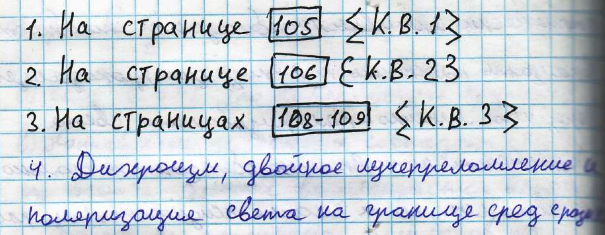 1. На странице 105 {К.В. 1}
2. На странице 106 {К.В. 2}
3. На страницах 108-109 {К.В. 3}
4. Дихроизм, двойное лучепреломление и
поляризация света на границе сред